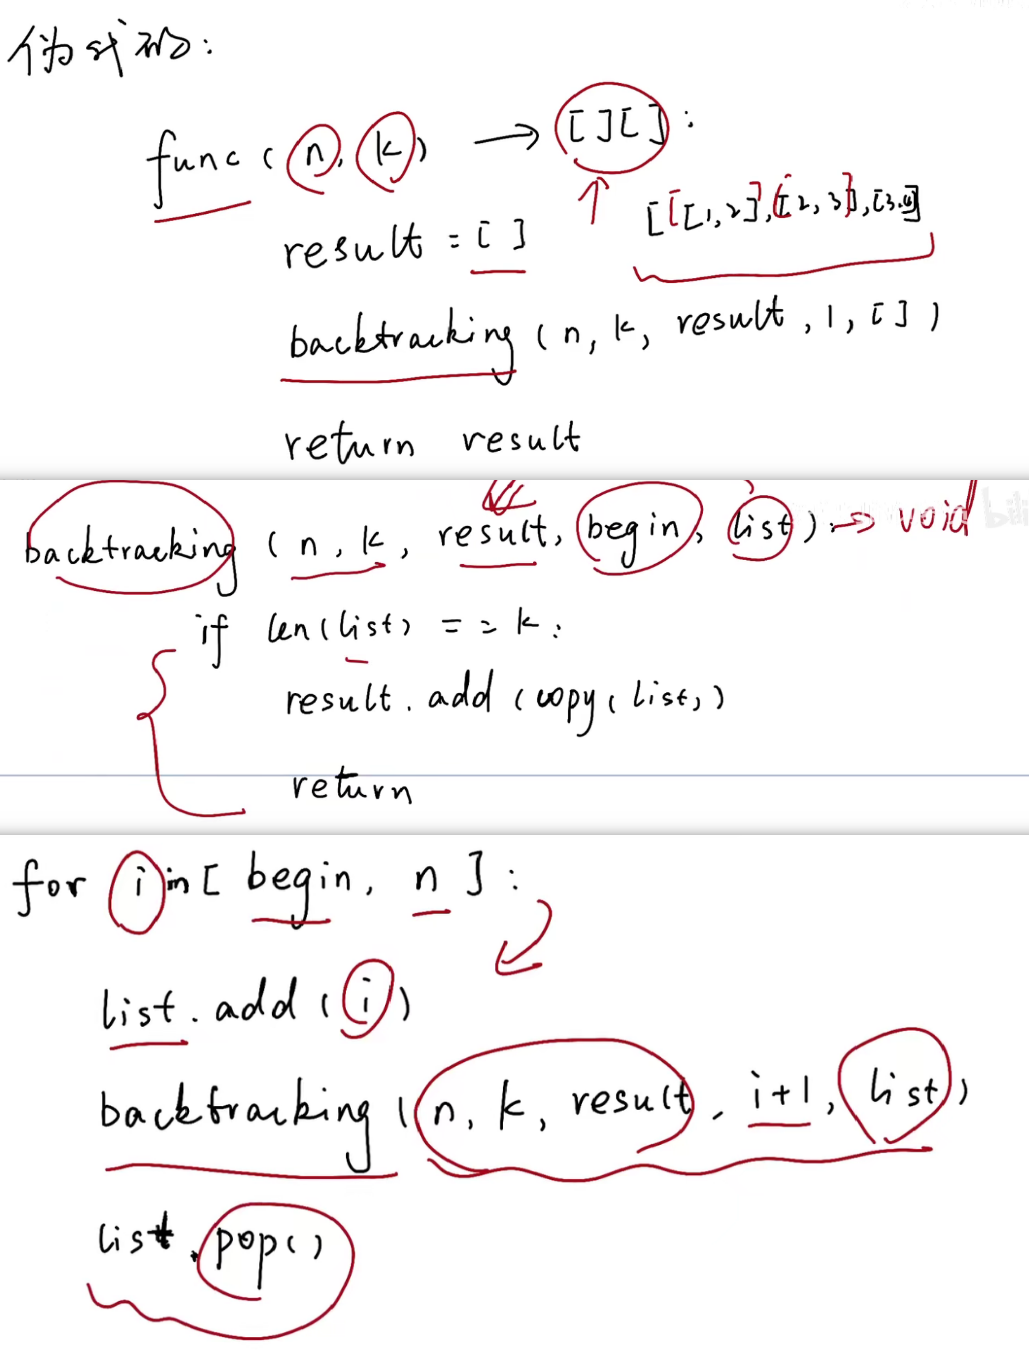 伪代码:
func (n, k) → [ ][ ] :
result = [ ]
[[1,2],[2,3],[3,4]]
backtracking (n, k, result, 1, [ ])
return result
backtracking (n, k, result, begin, list) → void
if len(list) == k:
result.add (copy(list))
return
for i in [begin, n] :
list.add (i)
backtracking (n, k, result, i+1, list)
list.pop()